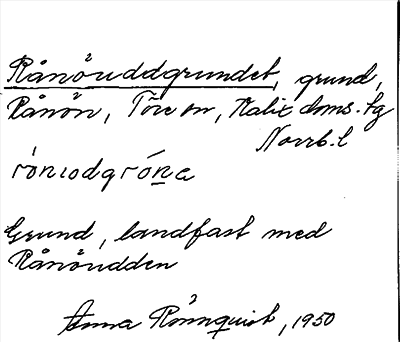 Rånöuddgrundet, grund,
Rånön, Töre sn, Kalix doms. tg
Norrb. l
rónıodgróna
Grund, landfast med
Rånöudden
Anna Rönnquist, 1950